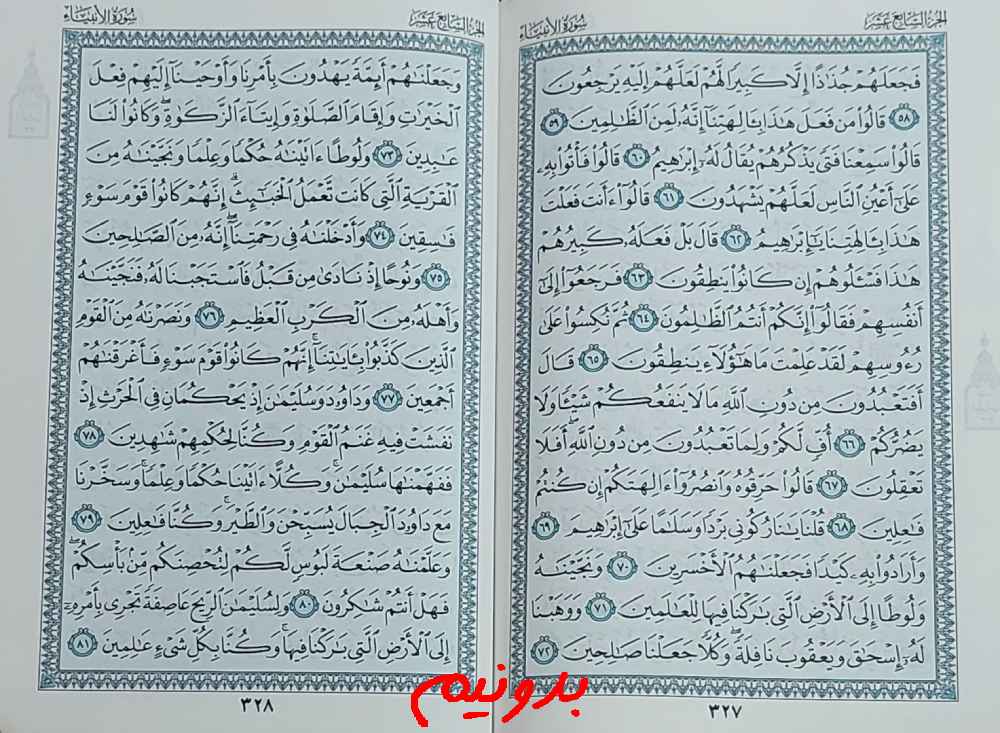 الجزء السابع عشر
سورة الأنبياء
فَجَعَلَهُمْ جُذَاذًا إِلَّا كَبِيرًا لَّهُمْ لَعَلَّهُمْ إِلَيْهِ يَرْجِعُونَ
﴿٥٨﴾ قَالُوا۟ مَن فَعَلَ هَٰذَا بِـَٔالِهَتِنَآ إِنَّهُۥ لَمِنَ ٱلظَّٰلِمِينَ ﴿٥٩﴾
قَالُوا۟ سَمِعْنَا فَتًى يَذْكُرُهُمْ يُقَالُ لَهُۥٓ إِبْرَٰهِيمُ ﴿٦٠﴾ قَالُوا۟ فَأْتُوا۟ بِهِۦ
عَلَىٰٓ أَعْيُنِ ٱلنَّاسِ لَعَلَّهُمْ يَشْهَدُونَ ﴿٦١﴾ قَالُوٓا۟ ءَأَنتَ فَعَلْتَ
هَٰذَا بِـَٔالِهَتِنَا يَٰٓإِبْرَٰهِيمُ ﴿٦٢﴾ قَالَ بَلْ فَعَلَهُۥ كَبِيرُهُمْ
هَٰذَا فَسْـَٔلُوهُمْ إِن كَانُوا۟ يَنطِقُونَ ﴿٦٣﴾ فَرَجَعُوٓا۟ إِلَىٰٓ
أَنفُسِهِمْ فَقَالُوٓا۟ إِنَّكُمْ أَنتُمُ ٱلظَّٰلِمُونَ ﴿٦٤﴾ ثُمَّ نُكِسُوا۟ عَلَىٰ
رُءُوسِهِمْ لَقَدْ عَلِمْتَ مَا هَٰٓؤُلَآءِ يَنطِقُونَ ﴿٦٥﴾ قَالَ
أَفَتَعْبُدُونَ مِن دُونِ ٱللَّهِ مَا لَا يَنفَعُكُمْ شَيْـًٔا وَلَا
يَضُرُّكُمْ ﴿٦٦﴾ أُفٍّ لَّكُمْ وَلِمَا تَعْبُدُونَ مِن دُونِ ٱللَّهِ ۖ أَفَلَا
تَعْقِلُونَ ﴿٦٧﴾ قَالُوا۟ حَرِّقُوهُ وَٱنصُرُوٓا۟ ءَالِهَتَكُمْ إِن كُنتُمْ
فَٰعِلِينَ ﴿٦٨﴾ قُلْنَا يَٰنَارُ كُونِى بَرْدًا وَسَلَٰمًا عَلَىٰٓ إِبْرَٰهِيمَ ﴿٦٩﴾
وَأَرَادُوا۟ بِهِۦ كَيْدًا فَجَعَلْنَٰهُمُ ٱلْأَخْسَرِينَ ﴿٧٠﴾ وَنَجَّيْنَٰهُ
وَلُوطًا إِلَى ٱلْأَرْضِ ٱلَّتِى بَٰرَكْنَا فِيهَا لِلْعَٰلَمِينَ ﴿٧١﴾ وَوَهَبْنَا
لَهُۥٓ إِسْحَٰقَ وَيَعْقُوبَ نَافِلَةً ۖ وَكُلًّا جَعَلْنَا صَٰلِحِينَ ﴿٧٢﴾
٣٢٧
الجزء السابع عشر
سورة الأنبياء
وَجَعَلْنَٰهُمْ أَئِمَّةً يَهْدُونَ بِأَمْرِنَا وَأَوْحَيْنَآ إِلَيْهِمْ فِعْلَ
ٱلْخَيْرَٰتِ وَإِقَامَ ٱلصَّلَوٰةِ وَإِيتَآءَ ٱلزَّكَوٰةِ ۖ وَكَانُوا۟ لَنَا
عَٰبِدِينَ ﴿٧٣﴾ وَلُوطًا ءَاتَيْنَٰهُ حُكْمًا وَعِلْمًا وَنَجَّيْنَٰهُ مِنَ
ٱلْقَرْيَةِ ٱلَّتِى كَانَت تَّعْمَلُ ٱلْخَبَٰٓئِثَ ۗ إِنَّهُمْ كَانُوا۟ قَوْمَ سَوْءٍ
فَٰسِقِينَ ﴿٧٤﴾ وَأَدْخَلْنَٰهُ فِى رَحْمَتِنَآ ۖ إِنَّهُۥ مِنَ ٱلصَّٰلِحِينَ
﴿٧٥﴾ وَنُوحًا إِذْ نَادَىٰ مِن قَبْلُ فَٱسْتَجَبْنَا لَهُۥ فَنَجَّيْنَٰهُ
وَأَهْلَهُۥ مِنَ ٱلْكَرْبِ ٱلْعَظِيمِ ﴿٧٦﴾ وَنَصَرْنَٰهُ مِنَ ٱلْقَوْمِ
ٱلَّذِينَ كَذَّبُوا۟ بِـَٔايَٰتِنَآ ۚ إِنَّهُمْ كَانُوا۟ قَوْمَ سَوْءٍ فَأَغْرَقْنَٰهُمْ
أَجْمَعِينَ ﴿٧٧﴾ وَدَاوُۥدَ وَسُلَيْمَٰنَ إِذْ يَحْكُمَانِ فِى ٱلْحَرْثِ إِذْ
نَفَشَتْ فِيهِ غَنَمُ ٱلْقَوْمِ وَكُنَّا لِحُكْمِهِمْ شَٰهِدِينَ ﴿٧٨﴾
فَفَهَّمْنَٰهَا سُلَيْمَٰنَ ۚ وَكُلًّا ءَاتَيْنَا حُكْمًا وَعِلْمًا ۚ وَسَخَّرْنَا
مَعَ دَاوُۥدَ ٱلْجِبَالَ يُسَبِّحْنَ وَٱلطَّيْرَ ۚ وَكُنَّا فَٰعِلِينَ ﴿٧٩﴾
وَعَلَّمْنَٰهُ صَنْعَةَ لَبُوسٍ لَّكُمْ لِتُحْصِنَكُم مِّنۢ بَأْسِكُمْ ۖ
فَهَلْ أَنتُمْ شَٰكِرُونَ ﴿٨٠﴾ وَلِسُلَيْمَٰنَ ٱلرِّيحَ عَاصِفَةً تَجْرِى بِأَمْرِهِۦٓ
إِلَى ٱلْأَرْضِ ٱلَّتِى بَٰرَكْنَا فِيهَا ۚ وَكُنَّا بِكُلِّ شَىْءٍ عَٰلِمِينَ ﴿٨١﴾
٣٢٨
بدونیم